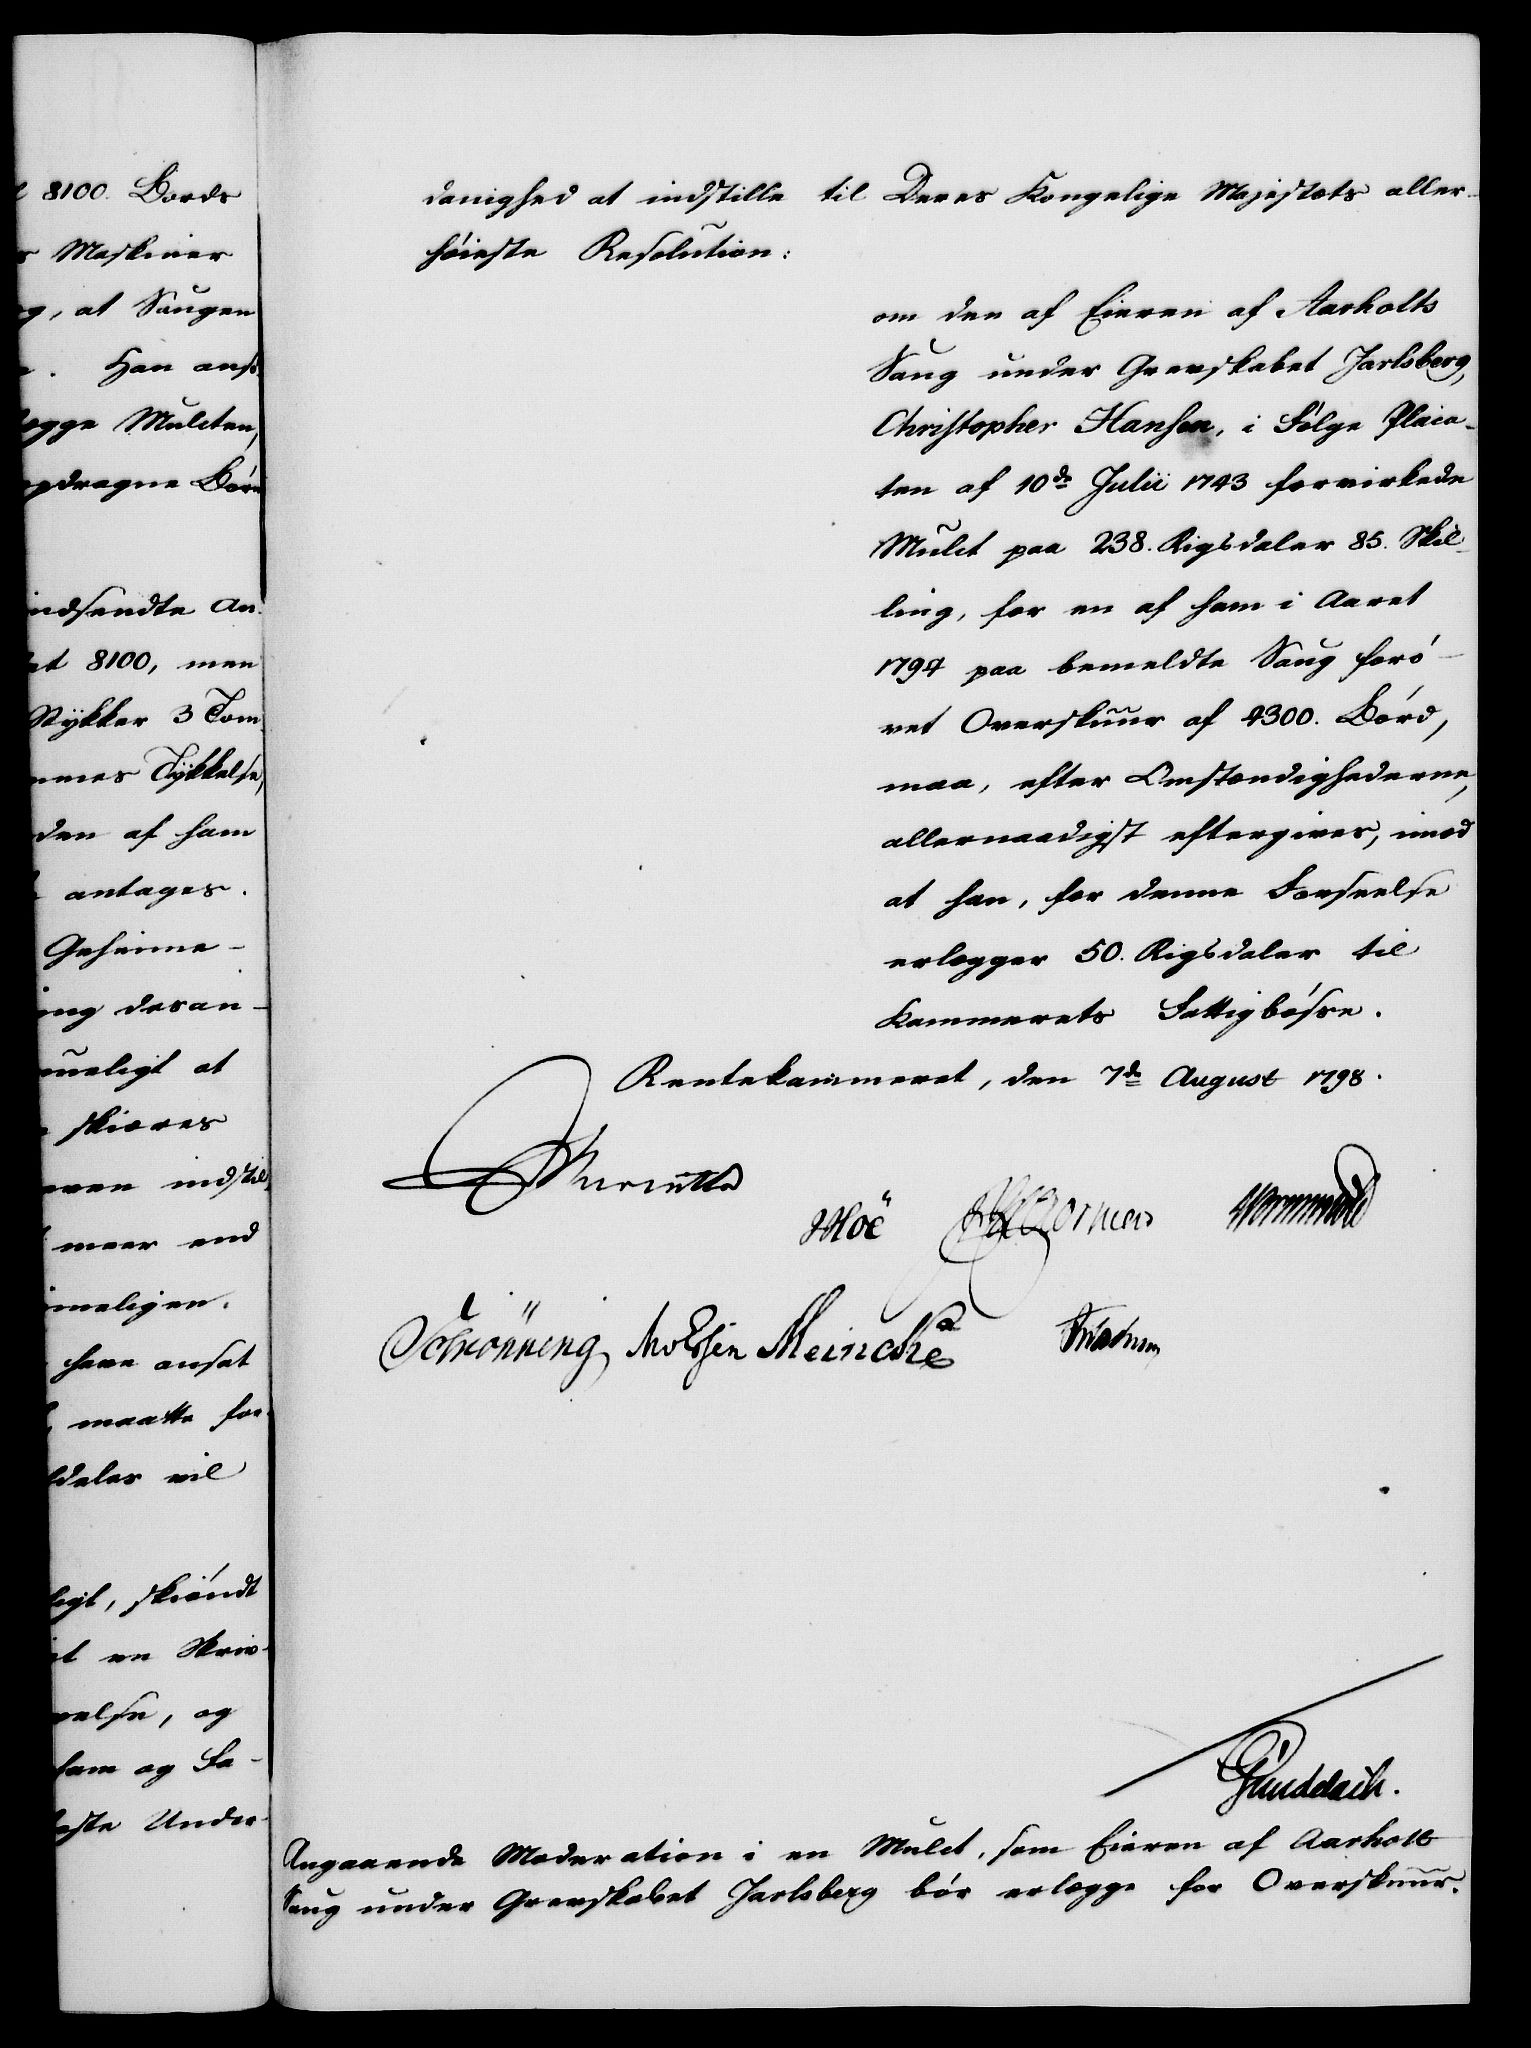 8100. Bords
Maskiner
at Saugen
Han ans
Mulcten,
indsendte An-
8100, men
Stykker 3 Tom-
Tykkelse,
den af ham
antages.
Geheime-
desan-
at
skiæres
indstil-
meer end
have ansat
maatte for-
vil
skiøndt
en Skriv-
og
ham og Fa-
Under-
danighed at indstille til Deres Kongelige Majestæts aller-
høieste Resolution:
om den af Eieren af Aarholts
Saug under Grevskabet Jarlsberg,
Christopher Hansen, i Følge Placa-
ten af 10de Julii 1743 forvirkede
Mulct paa 238. Rigsdaler 85. Skil-
ling, for en af ham i Aaret
1794 paa bemeldte Saug forø-
vet Overskuur af 4300. Bórd,
maa, efter Omstændighederne,
allernaadigst eftergives, imod
at han, for denne Forseelse
erlægger 50. Rigsdaler til
Kammerets Fattigbøsse.
Rentekammeret, den 7de August 1798.
Hoë
Wormskiold
Schrønning Meincke
Angaaende Moderation i en Mulct, som Eieren af Aarholt
Saug under Grevskabet Jarlsberg bør erlægge for Overskuur.